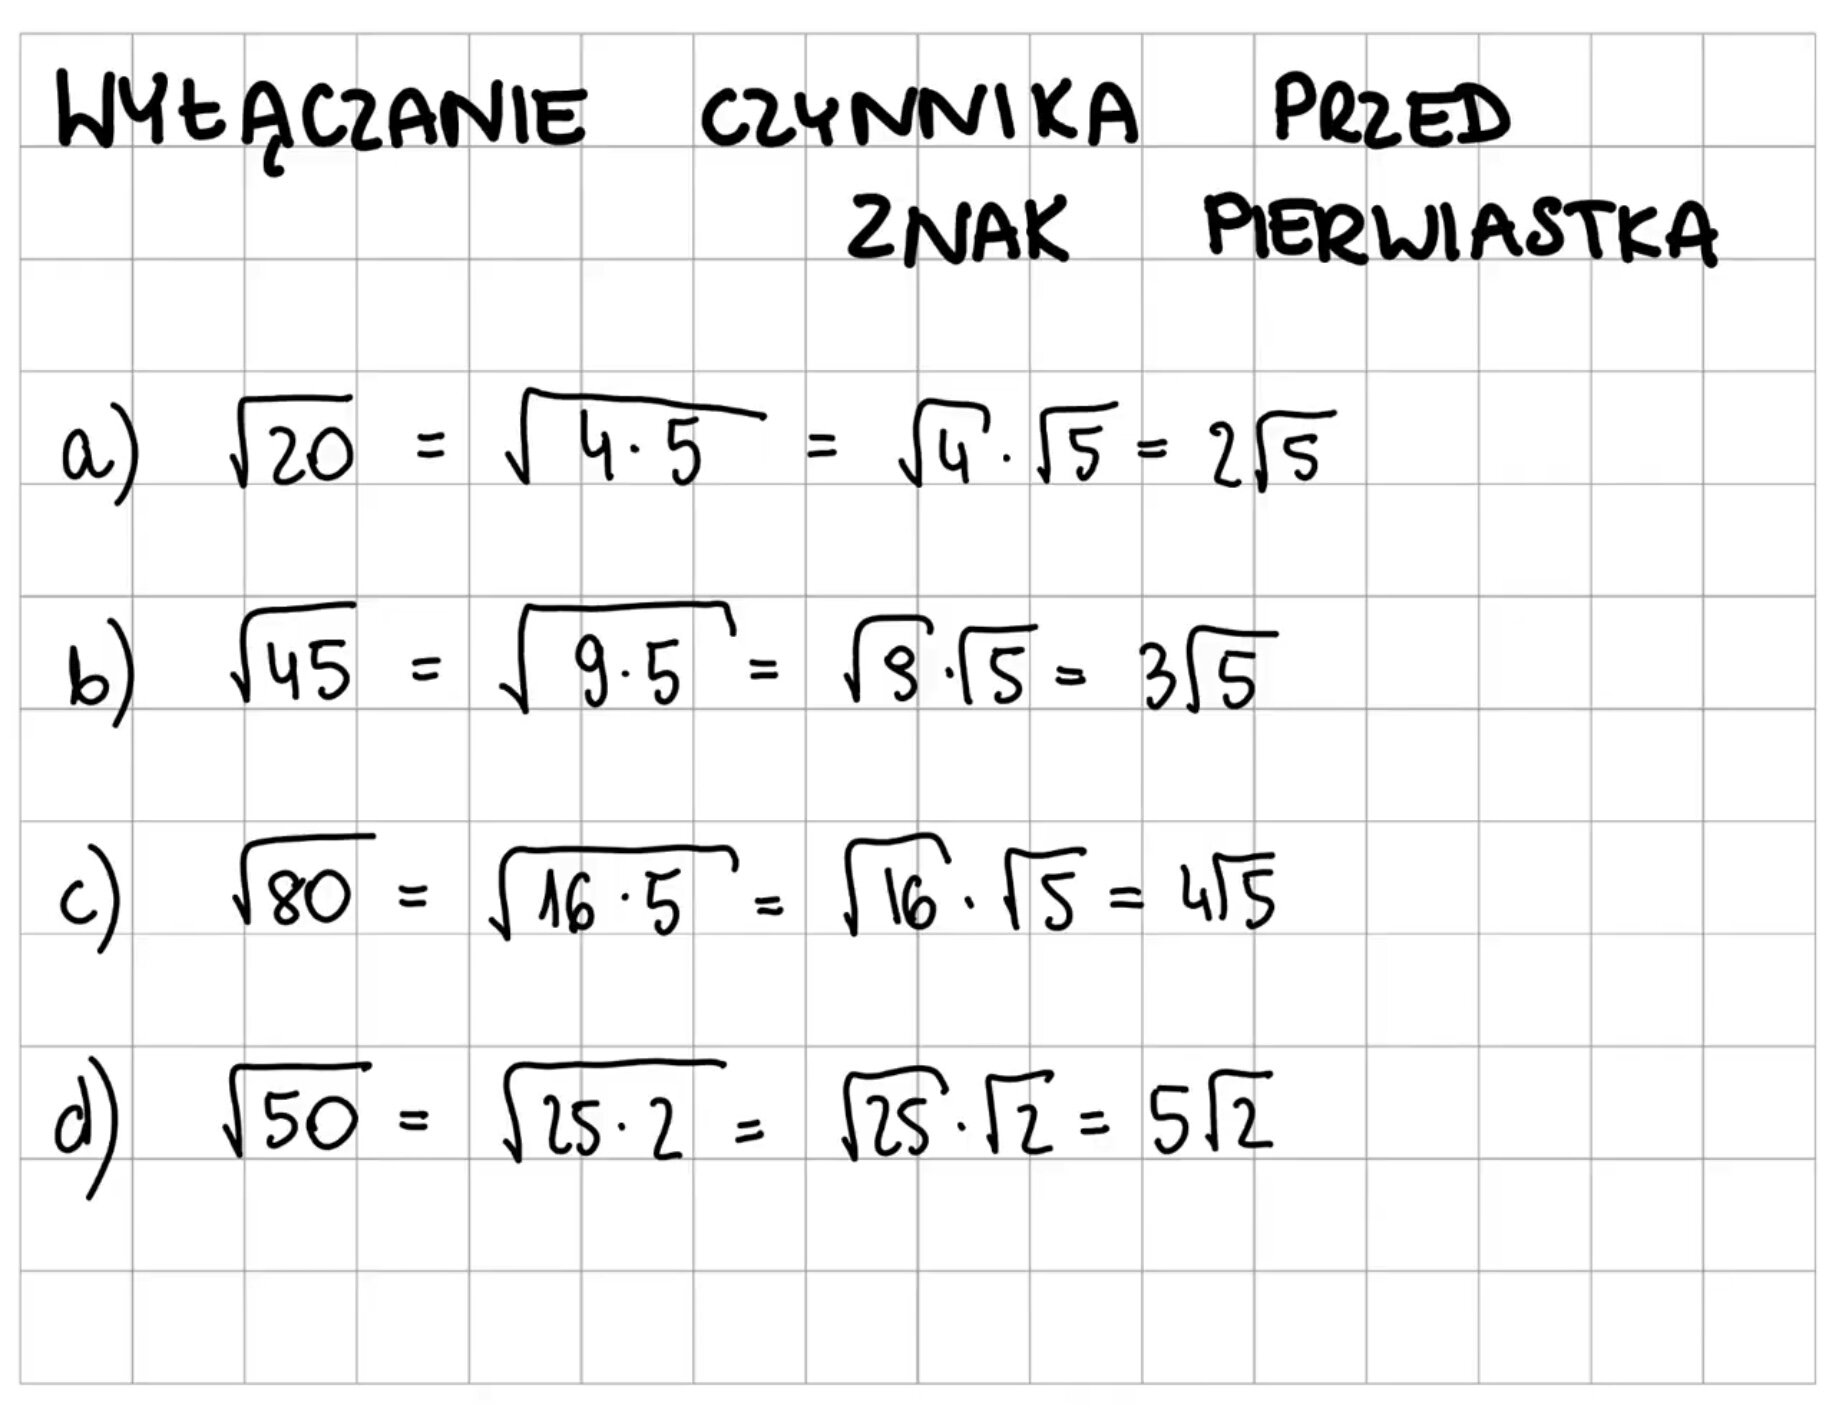 WYŁĄCZANIE CZYNNIKA PRZED
ZNAK PIERWIASTKA
a) √20 = √4·5 = √4 · √5 = 2√5
b) √45 = √9·5 = √9 · √5 = 3√5
c) √80 = √16·5 = √16 · √5 = 4√5
d) √50 = √25·2 = √25 · √2 = 5√2